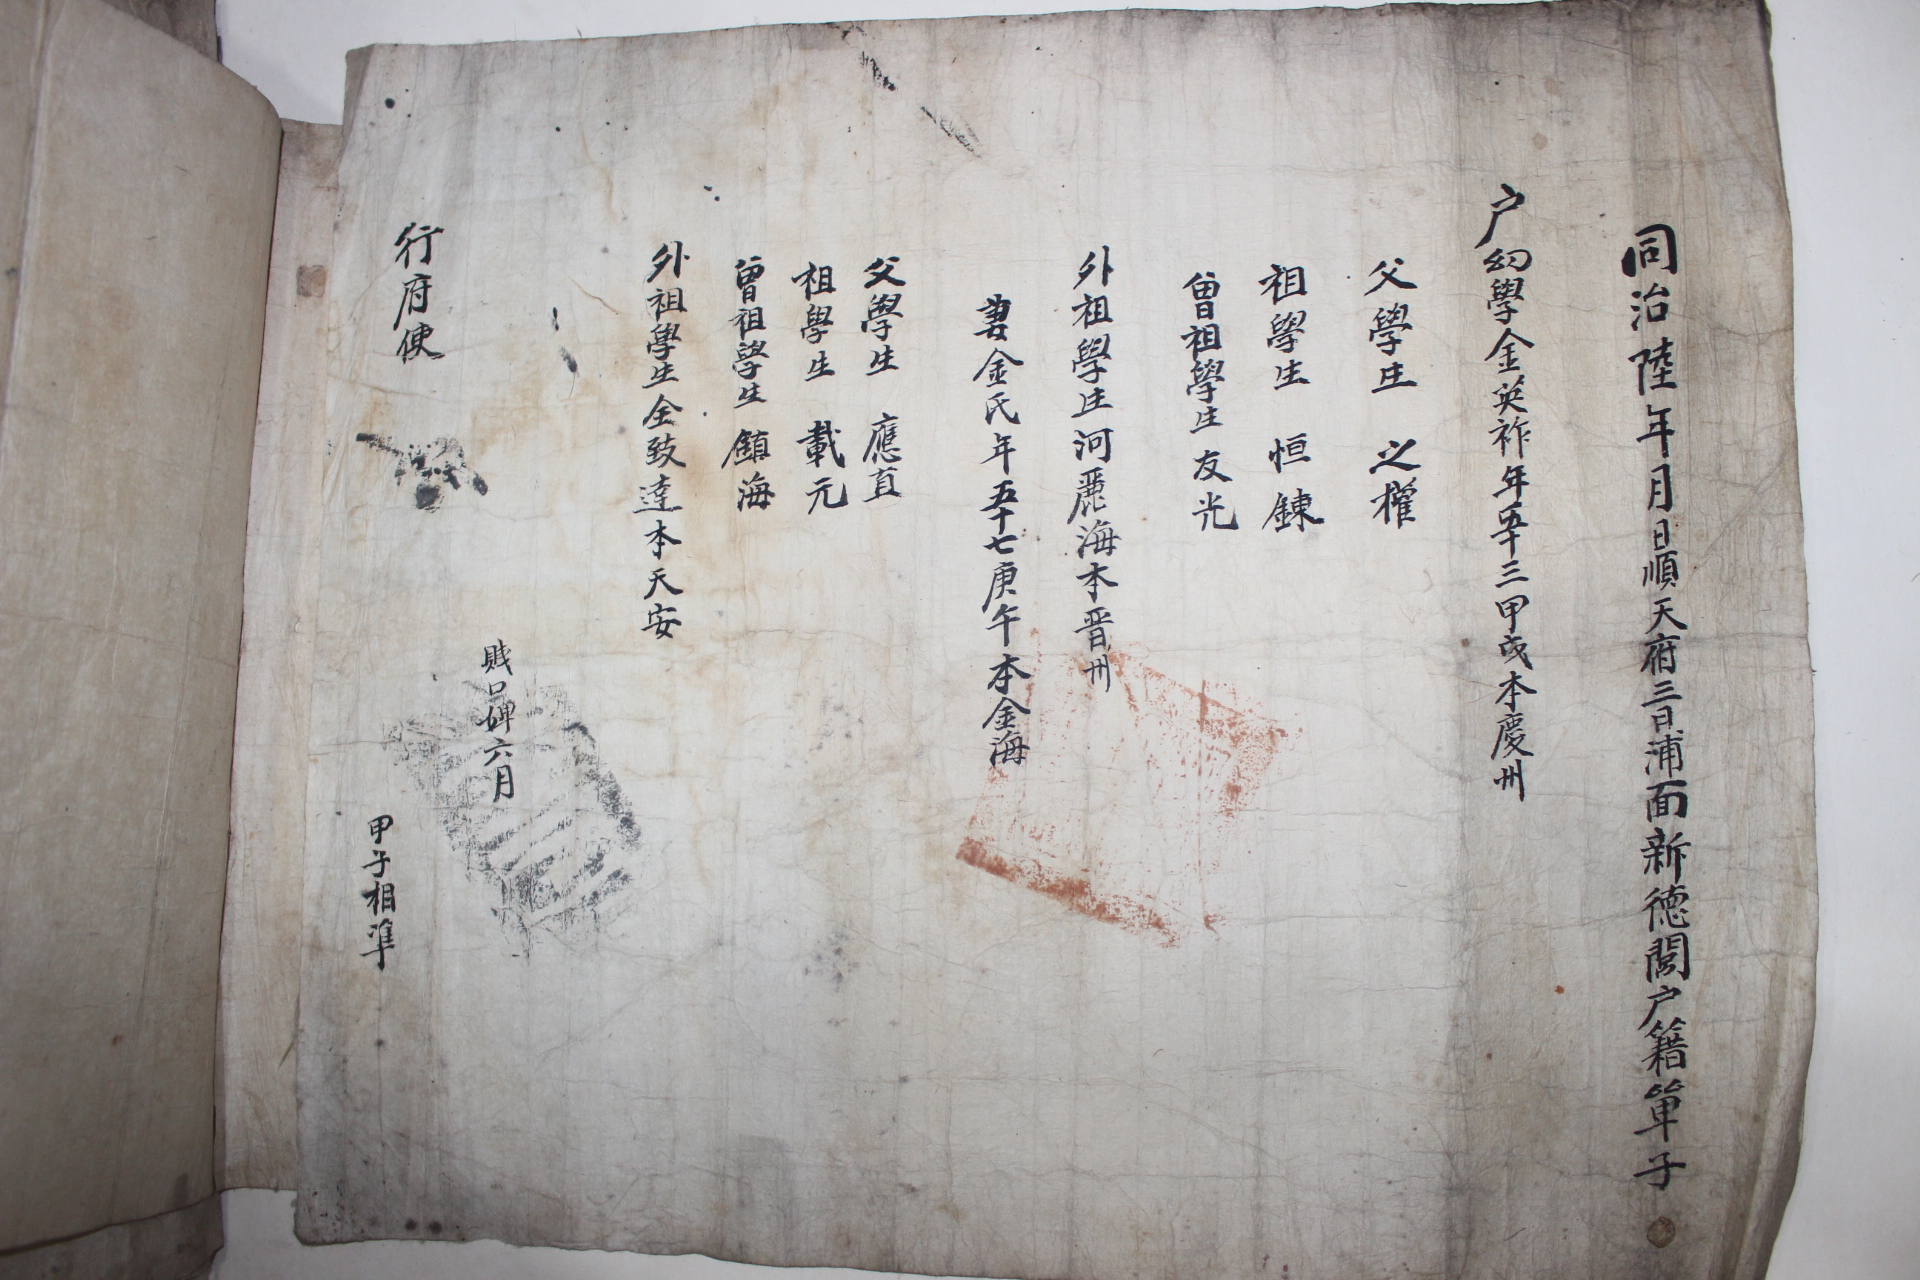 同治陸年月日順天府三日浦面新德閣戶籍單子
戶幼學金英祚年五十三甲戌本慶州
父學生 之權
祖學生 恒鍊
曾祖學生 友光
外祖學生河麗海本晋州
妻金氏年五十七庚午本金海
父學生 應直
祖學生 載元
曾祖學生 鎮海
外祖學生全致達本天安
賤口婢六月
行府使
甲子相準